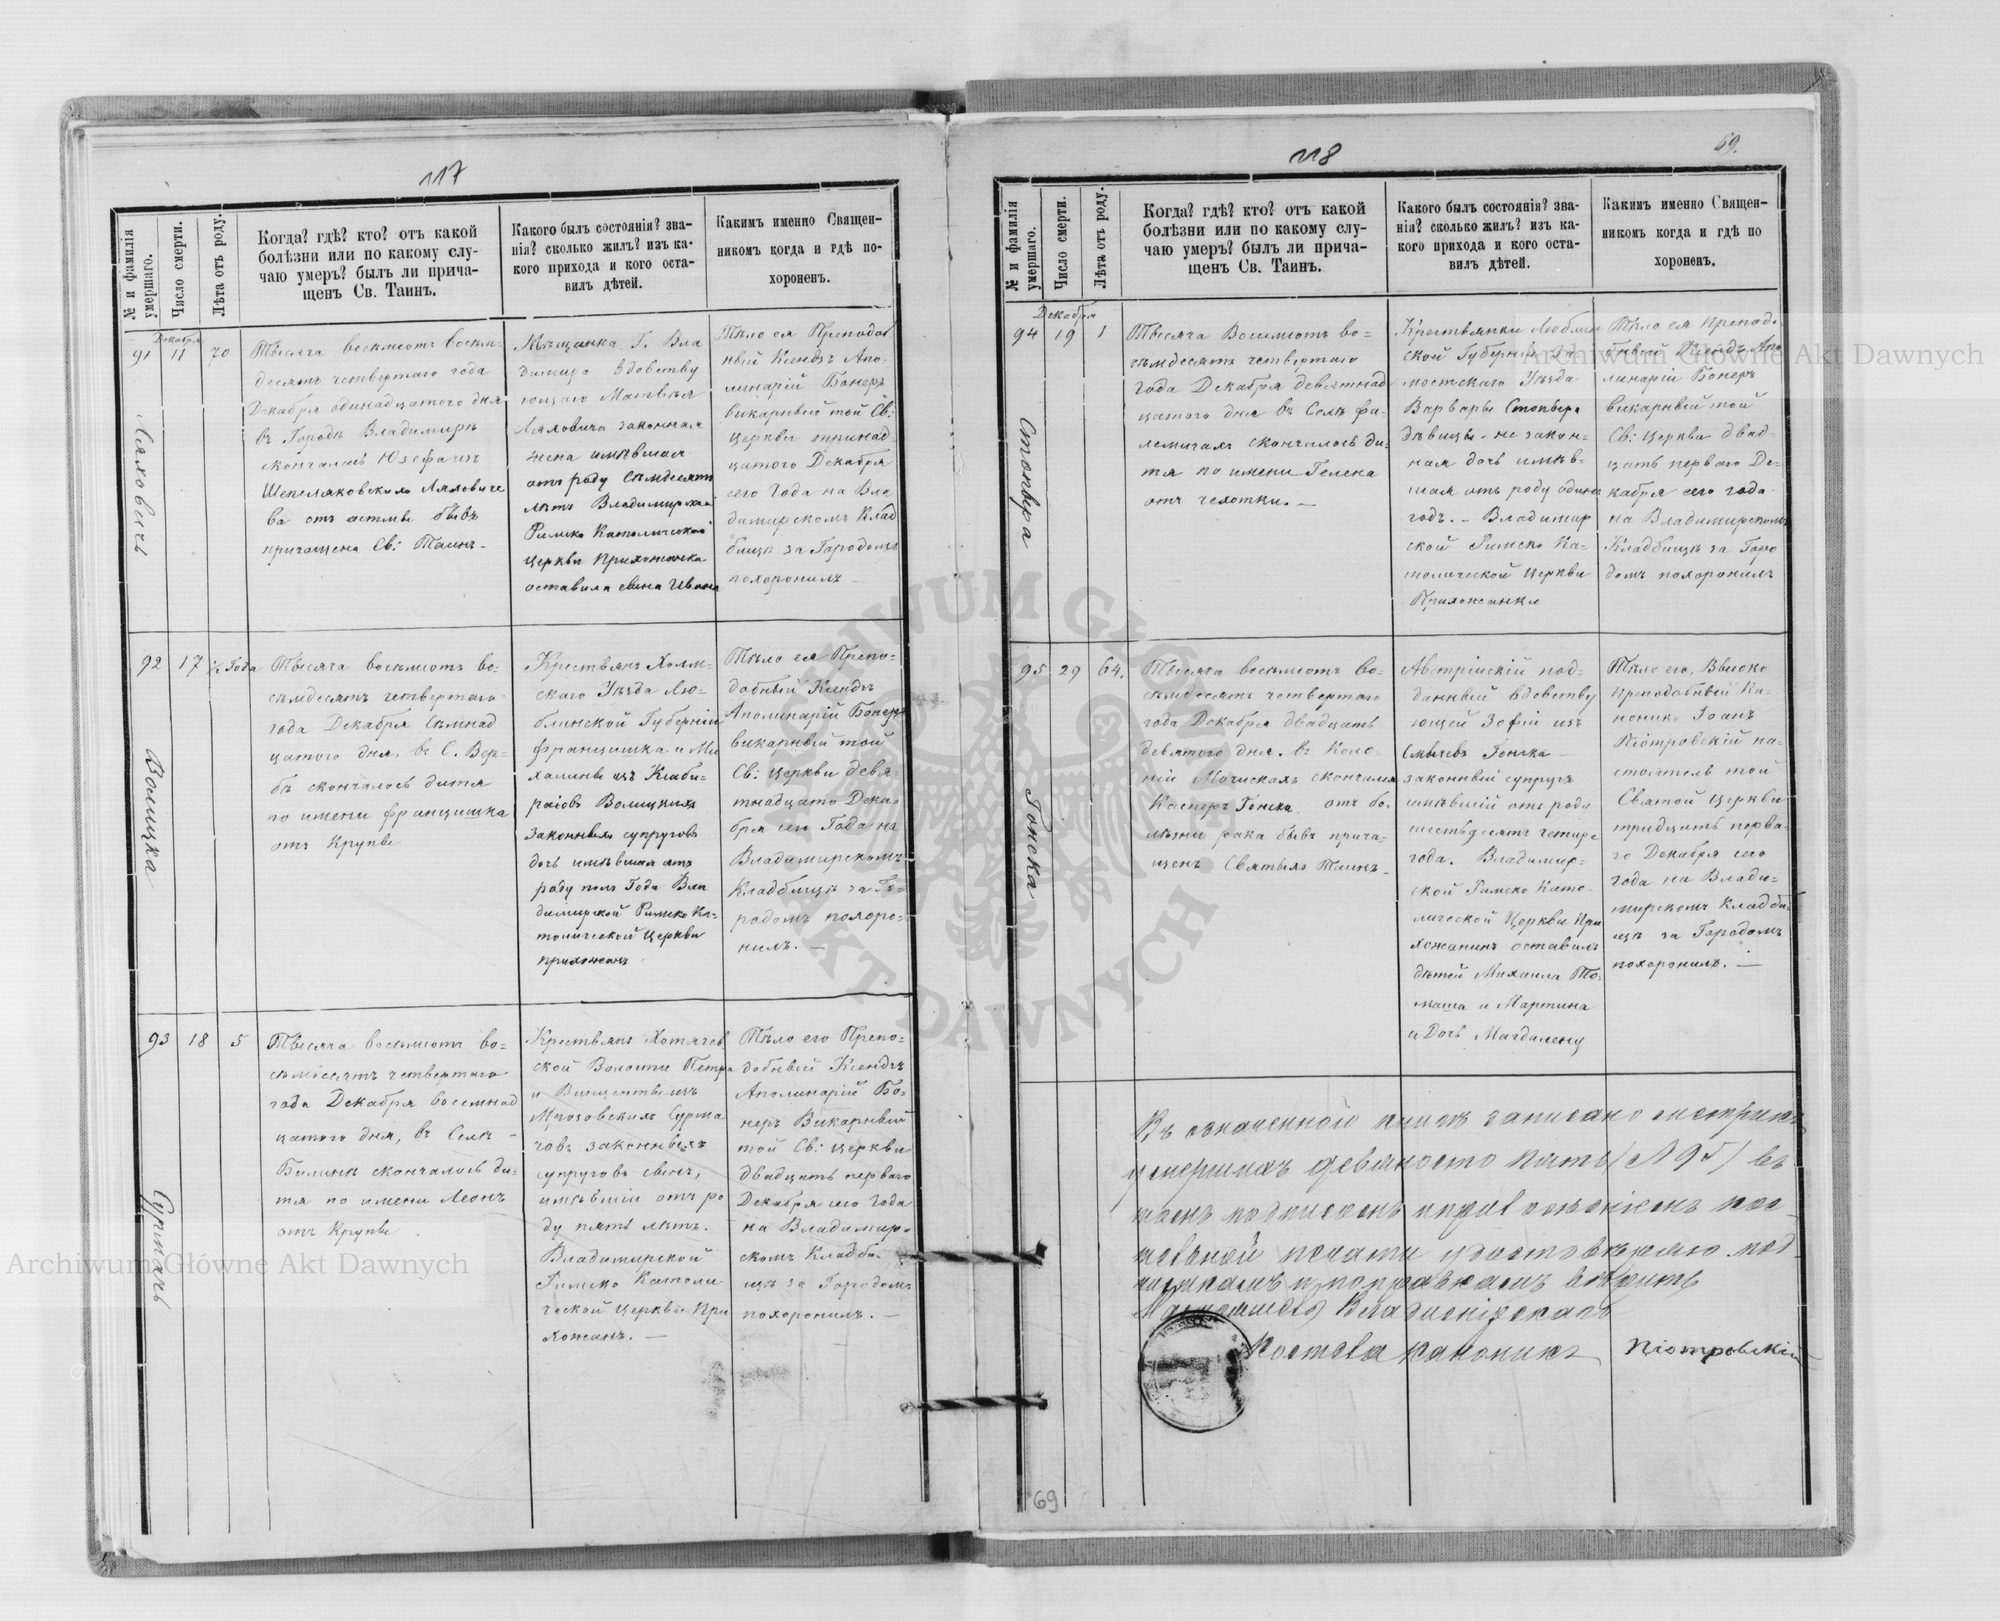 117
№ и фамилія умершаго.
Число смерти.
Лѣта отъ роду.
Когда? гдѣ? кто? отъ какой
болѣзни или по какому слу-
чаю умеръ? былъ ли прича-
щенъ Св. Таинъ.
Какого былъ состоянія? зва-
нія? сколько жилъ? изъ ка-
кого прихода и кого оста-
вилъ дѣтей.
Какимъ именно Священ-
никомъ когда и гдѣ по-
хороненъ.
Декабря
91 11 70
Ляховичъ
Тысяча восемьсотъ восем-
десятъ четвертаго года
Декабря одинадцатого дня
въ Городѣ Владимирѣ
скончалась Юзефа изъ
Шепеляковскихъ Ляховиче
ва отъ астмы бывъ
причащена Св: Таинъ-
Мѣщанка Г. Вла
димира вдовству
ющаго Матвѣя
Ляховича законная
жена имѣвшая
отъ роду Семдесятъ
лѣтъ Владимирская
Римско Католической
Церкви Прихожанка
оставила сына Ивана
Тѣло ея Преподоб
ный Ксендзъ Апо-
линарій Бонеръ
викарный той Св:
Церкви тринад
цатого Декабря
сего Года на Вла
димирскомъ Клад
бищѣ за Городомъ
похоронилъ
92 17 ½ Года
Волицка
Тысяча восемьсотъ во-
семдесятъ четвертаго
года Декабря Семнад
цатого дня. въ С. Вер-
бѣ скончалось дитя
по имени Францишка
отъ Крупы
Крестьянъ Холм-
скаго Уѣзда Лю-
блинской Губерніи
Францишка и Ми
халины изъ
Волицкихъ
законныхъ супруговъ
дочь имѣвшая отъ
роду полъ Года Вла
димирской Римско Ка-
толической Церкви
прихожанъ
Тѣло ея Препо-
добный Ксендзъ
Аполинарій Бонеръ
викарный той
Св: Церкви девя-
тнадцато Дека-
бря сего Года на
Владимирскомъ
Кладбищѣ за Го-
родомъ похоро-
нилъ. —
93 18 5
Сурмачъ
Тысяча восемьсотъ во-
семдесятъ четвертаго
года Декабря восемнад
цатого дня, въ Селѣ -
Билинѣ скончалось ди-
тя по имени Леонъ
отъ Крупы
Крестьянъ Хотячев
ской Волости Петра
и Винценты изъ
Мрозовскихъ Сурма-
човъ законныхъ
супруговъ сынъ,
имѣвшій отъ ро
ду пять лѣтъ.
Владимирской
Римско Католи
ческой Церкви При
хожанъ. —
Тѣло его Препо-
добный Ксендзъ
Аполинарій Бо-
неръ Викарный
той Св: Церкви
двадцать перваго
Декабря сего года
на Владимир-
скомъ Кладби-
щѣ за Городомъ
похоронилъ. —
118
69.
№ и фамилія умершаго.
Число смерти.
Лѣта отъ роду.
Когда? гдѣ? кто? отъ какой
болѣзни или по какому слу-
чаю умеръ? былъ ли прича-
щенъ Св. Таинъ.
Какого былъ состоянія? зва-
нія? сколько жилъ? изъ ка-
кого прихода и кого оста-
вилъ дѣтей.
Какимъ именно Священ-
никомъ когда и гдѣ по
хороненъ.
Декабря
94 19 1
Стопыра
Тысяча Восемьсотъ во-
семдесятъ четвертаго
года Декабря девятнад
цатого дня въ Селѣ Фа-
лемичахъ скончалось ди-
тя по имени Гелена
отъ чехотки. —
Крестьянки Люблин
ской Губерніи За-
мостскаго Уѣзда
Варвары Стопыра
дѣвицы - не закон-
ная дочь имѣв-
шая отъ роду одинъ
годъ. - Владимир
ской Римско Ка-
толической Церкви
Прихожанки
Тѣло ея препод-
обный Ксендзъ Апо
линарій Бонеръ
викарный той
Св: Церкви двад-
цать перваго Де-
кабря сего года
на Владимирскомъ
Кладбищѣ за Горо
домъ похоронилъ
95 29 64.
Гонска
Тысяча восемьсотъ во-
семдесятъ четвертаго
года Декабря двадцать
девятого дня. въ Коло-
ніи скончался
Касперъ Гонска отъ бо-
лѣзни рака бывъ прича-
щенъ Святыхъ Таинъ-
Австрійскій под-
данный вдовству
ющей Зофіи изъ
Гонска —
законный супругъ
имѣвшій отъ роду
шестьдесятъ четыре
года. Владимир-
ской Римско Като-
лической Церкви При
хожанинъ оставилъ
дѣтей Михаила То-
маша и Мартина
и Дочь Магдалену
Тѣло его, Высоко
преподобный Ка-
ноникъ Іоанъ
Піотровскій на-
стоятель той
Святой Церкви
тридцать перва-
го Декабря сего
года на Влади-
мирскомъ Кладби-
щѣ за Городомъ
похоронилъ. —
Въ означенной книгѣ записано метрикъ
умершихъ девяносто пять (№ 95) въ
чемъ подписомъ и приложеніемъ кос-
тельной печати удостовѣряю под-
чисткамъ и поправкамъ вѣрить
Настоятель Владимірскаго
Костела Каноникъ Піотровскій
69
Archiwum Główne Akt Dawnych
Archiwum Główne Akt Dawnych
ARCHIWUM GŁÓWNE AKT DAWNYCH